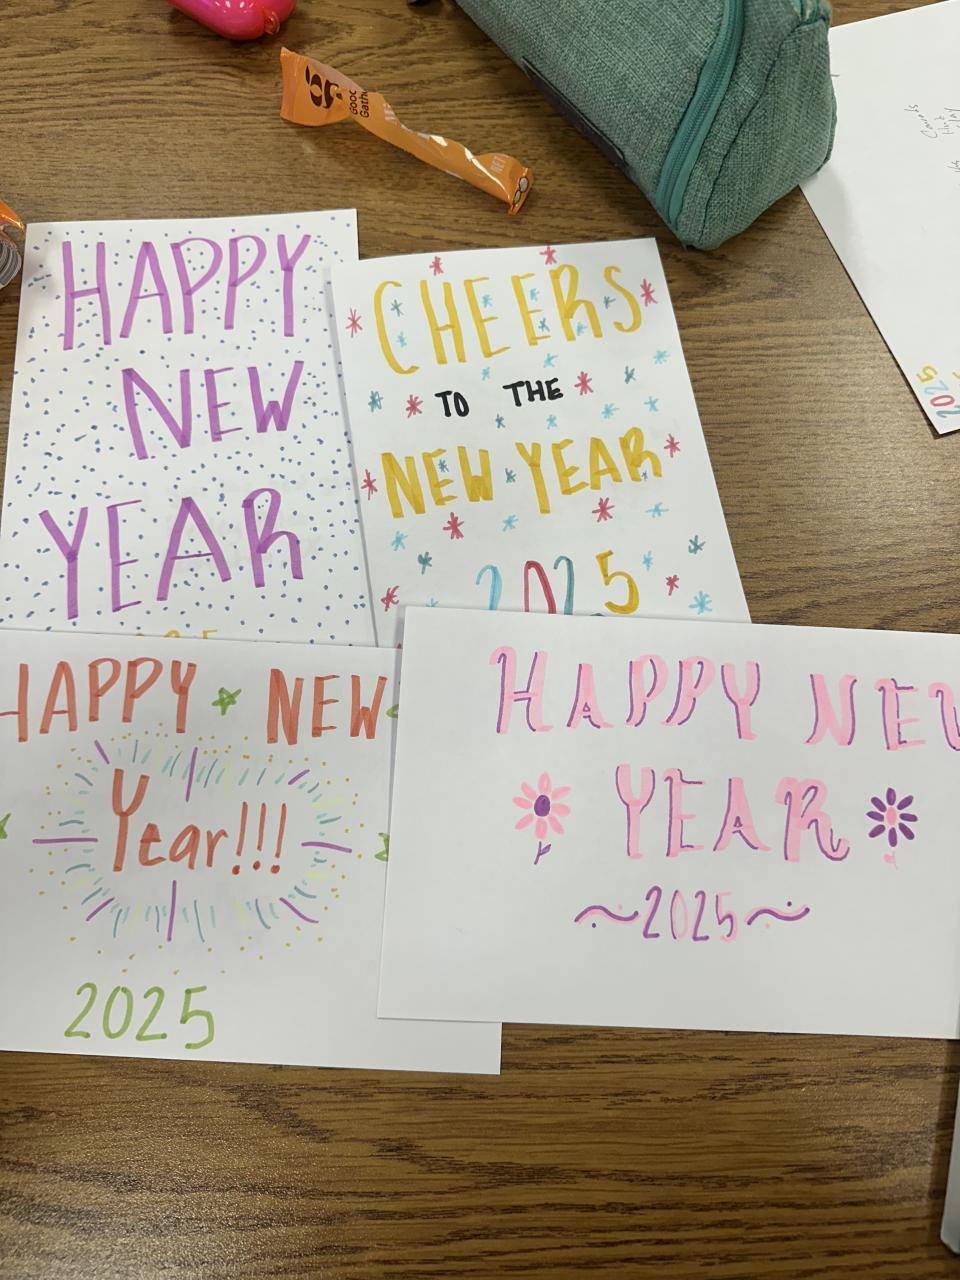 Good
Gath
HAPPY
NEW
YEAR
CHEERS
TO THE
NEW YEAR
2025
HAPPY NEW
Year!!!
2025
HAPPY NEW
YEAR
~2025~
2025